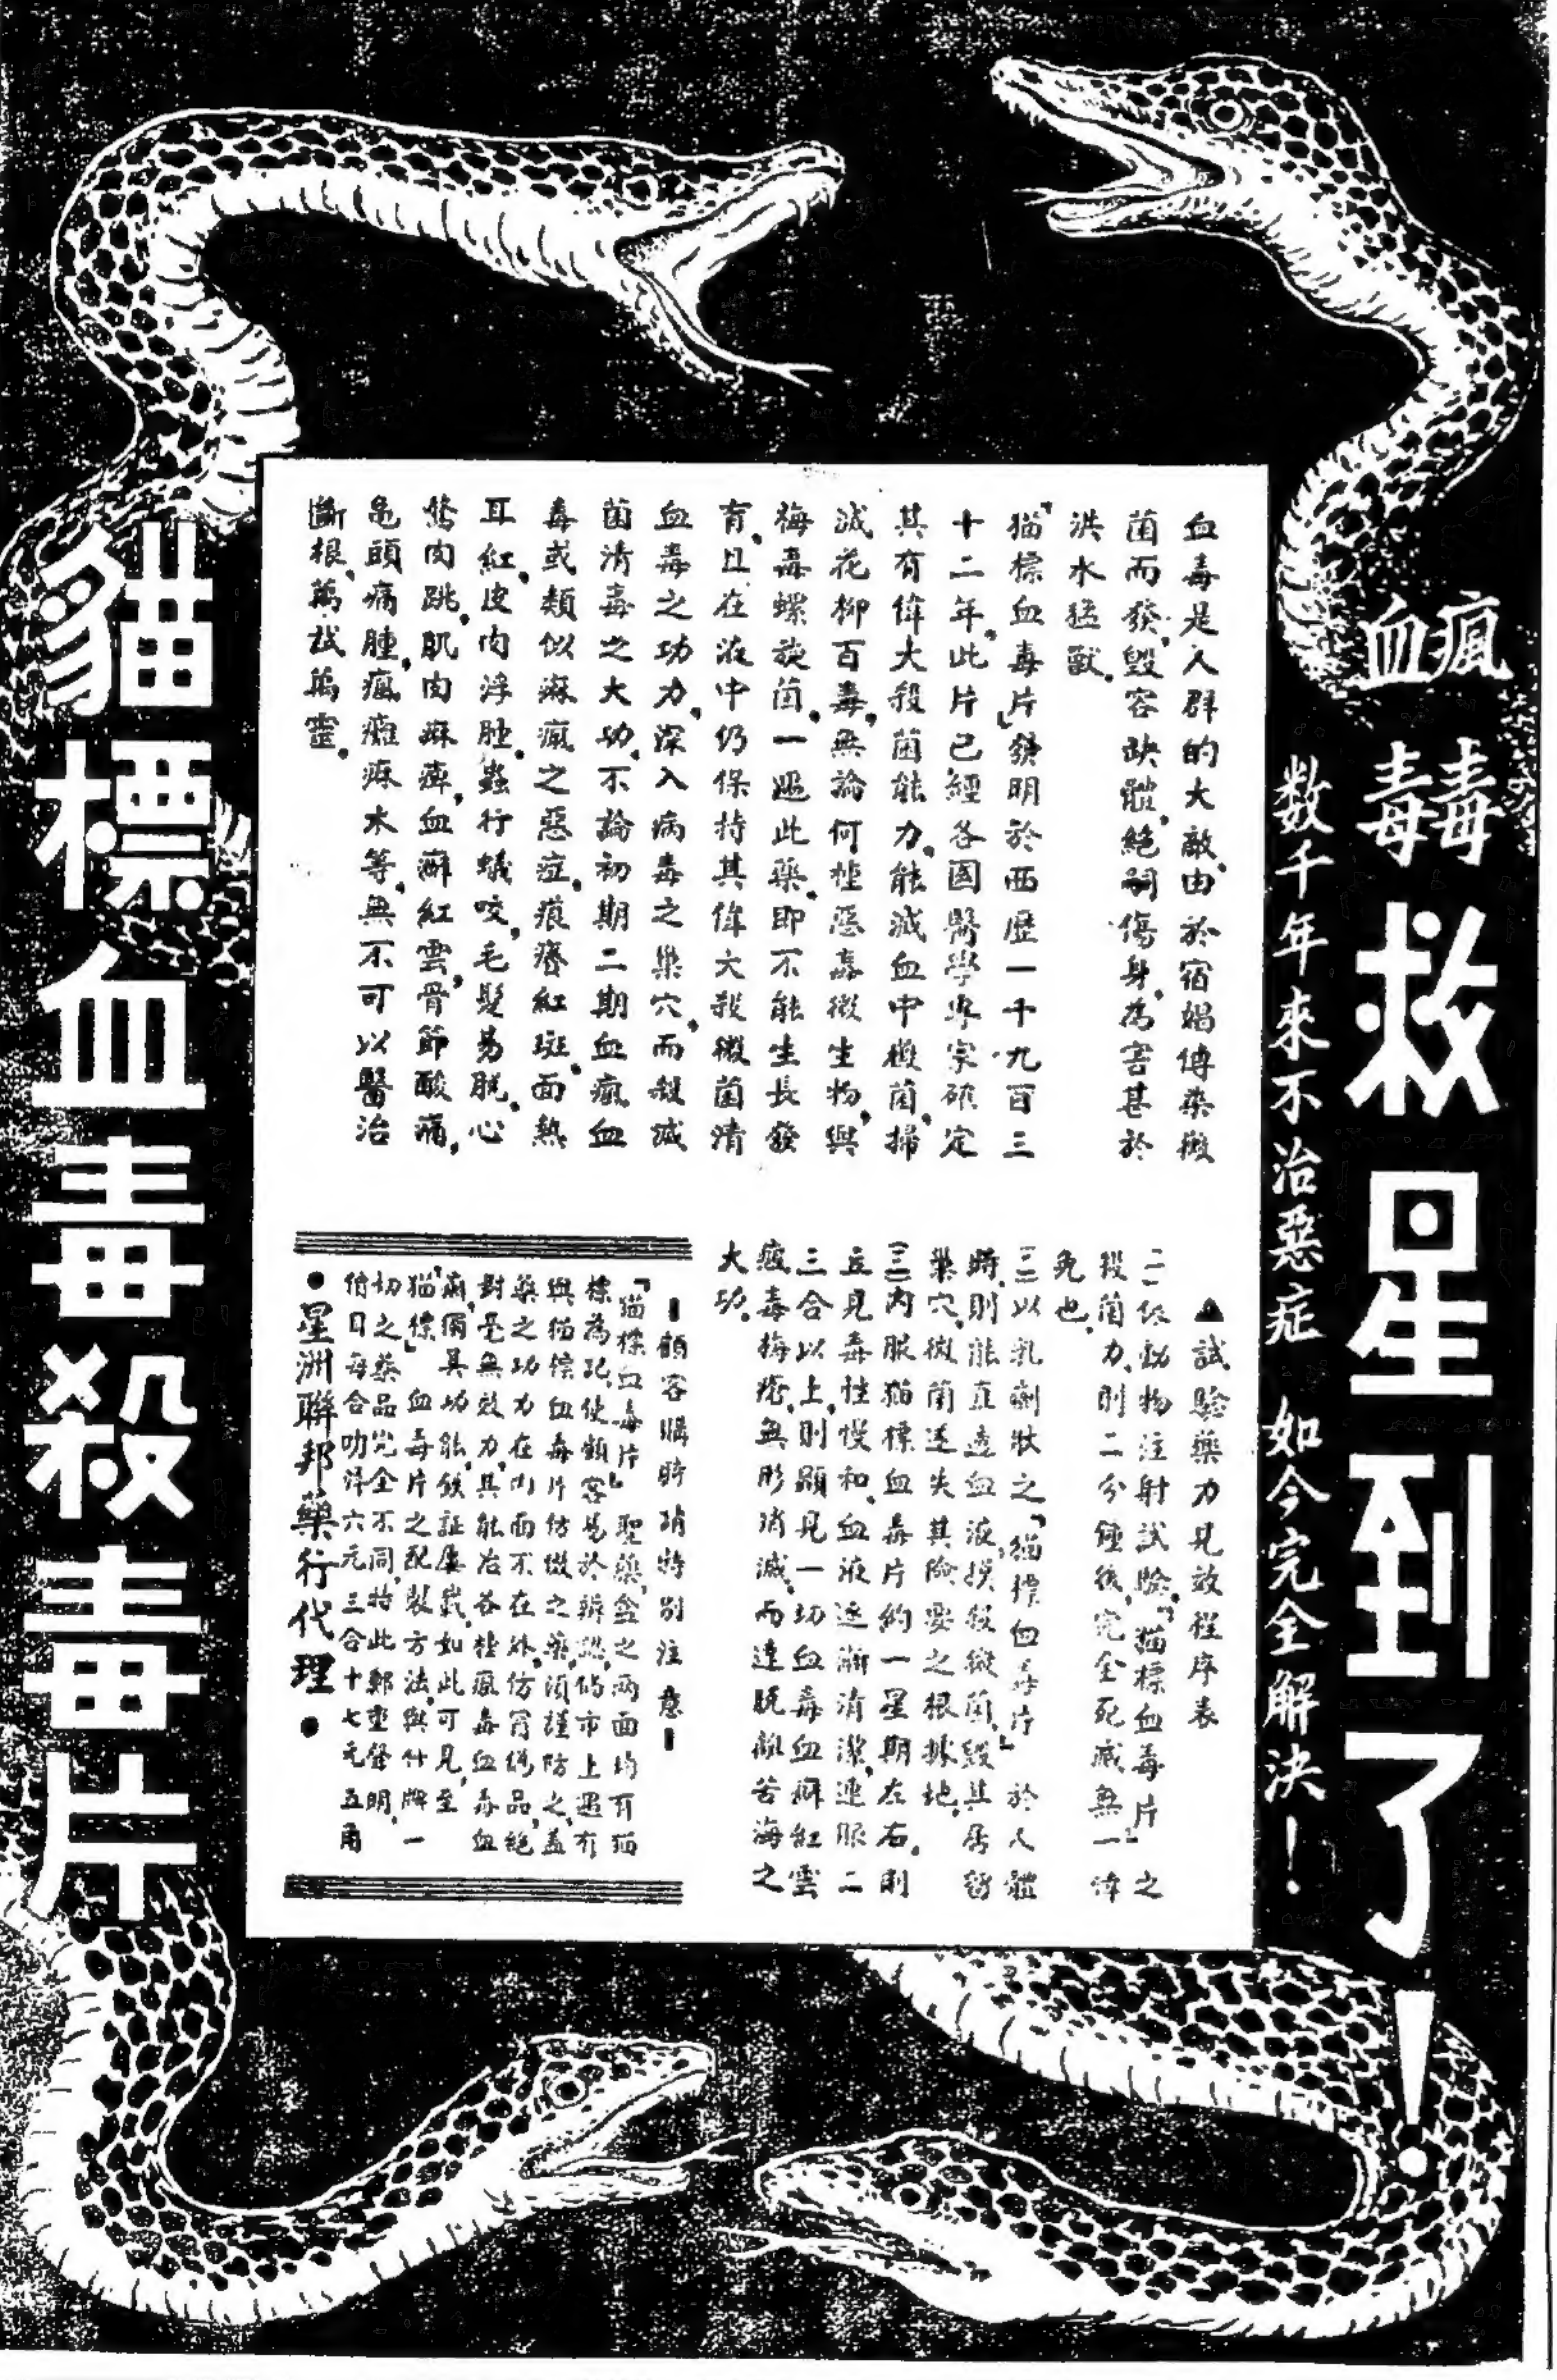 瘋毒
血毒
救星到了！
数千年來不治惡症 如今完全解決！
血毒是人群的大敵、由於宿娼傳染微
菌而發、毀容缺體、絕祠傷身、為害甚於
洪水猛獸。
「猫標血毒片」發明於西歷一千九百三
十二年、此片已經各国醫學專家確定
其有偉大殺菌能力、能滅血中微菌、掃
滅花柳百毒、無論何種惡毒微生物、與
梅毒螺旋菌、一遇此藥、即不能生長發
育、且在液中仍保持其偉大殺微菌清
血毒之功力、深入病毒之巢穴、而殺滅
菌清毒之大功、不論初期二期血瘋血
毒或類似痳瘋之惡症、痕癢紅斑、面熱
耳紅、皮肉浮腫、蟲行蟻咬、毛髮易脫、心
驚肉跳、肌肉痳痺、血癬紅雲、骨節酸痛、
龟頭痛腫、瘋癱痳木等、無不可以醫治
斷根、萬試萬靈。
▲試驗藥力見效程序表
(一)依動物注射試驗、「猫標血毒片」之
殺菌力、則二分鐘後、完全死滅無一倖
免也。
(二)以乳劑狀之「猫標血毒片」於人體
時、則能直達血液、撲殺微菌、毀其居留
巢穴、微菌遂失其險要之根據地。
(三)內服猫標血毒片約一星期左右、則
立見毒性慢和、血液逐漸清潔、連服二
三合以上、則顯見一切血毒血癬紅雲
瘋毒梅瘡、無形消滅、而達脫離苦海之
大功。
━顧客購時請特別注意━
「猫標血毒片」聖藥、盒之两面均有猫
標為記、使顧客易於辨認、倘市上遇有
與猫標血毒片仿做之藥、須謹防之、蓋
藥之功力在內而不在外、仿冒偽品、絕
對毫無效力、其能治各種瘋毒血毒血
癬、獨具功能、效証屢載、如此可見、至
「猫標」血毒片之配製方法、與什牌一
切之藥品完全不同、特此鄭重聲明、
價目每合叻洋六元 三合十七元五角
●星洲聯邦藥行代理●
貓標血毒殺毒片